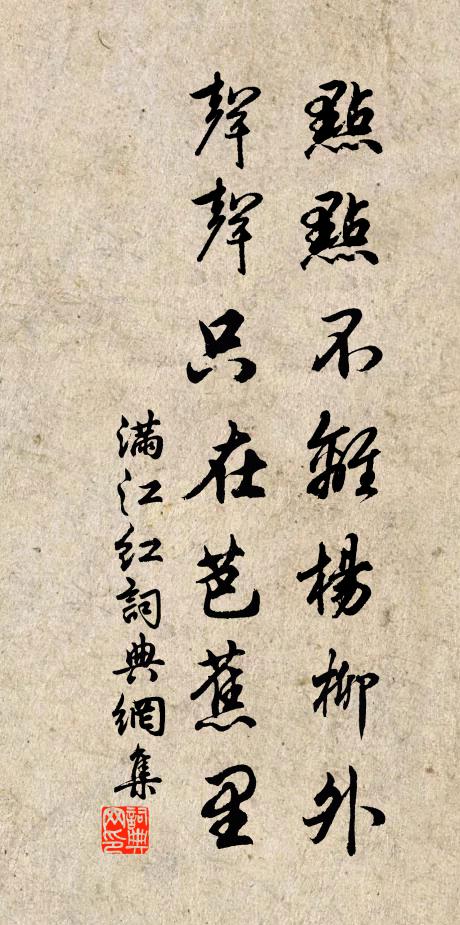 點點不離楊柳外
聲聲只在芭蕉里
滿江紅詞典網集
詞典網印